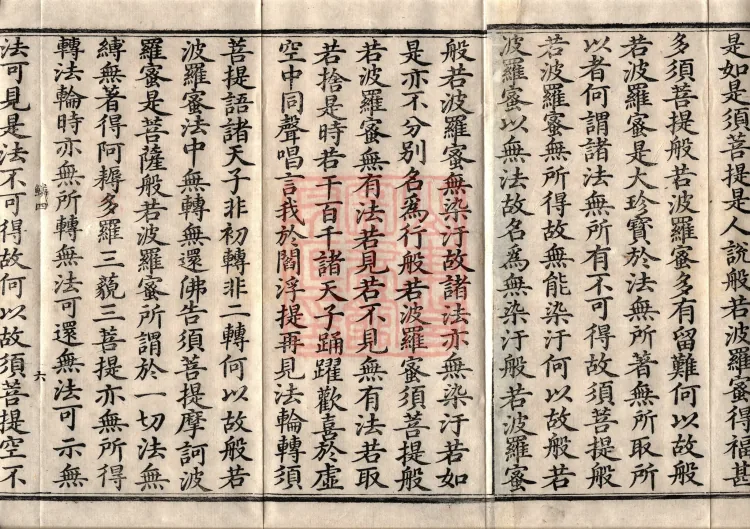 是如是須菩提是人說般若波羅蜜得福甚
多須菩提般若波羅蜜多有留難何以故般
若波羅蜜是大珍寶於法無所著無所取所
以者何謂諸法無所有不可得故須菩提般
若波羅蜜無所得故無能染汙何以故般若
波羅蜜以無法故名為無染汙般若波羅蜜
般若波羅蜜無染汙故諸法亦無染汙若如
是亦不分別名為行般若波羅蜜須菩提般
若波羅蜜無有法若見若不見無有法若取
若捨是時若干百千諸天子踊躍歡喜於虛
空中同聲唱言我於閻浮提再見法輪轉須
菩提語諸天子非初轉非二轉何以故般若
波羅蜜法中無轉無還佛告須菩提摩訶波
羅蜜是菩薩般若波羅蜜所謂於一切法無
縛無著得阿耨多羅三藐三菩提亦無所得
轉法輪時亦無所轉無法可還無法可示無
鱗四
六
法可見是法不可得故何以故須菩提空不